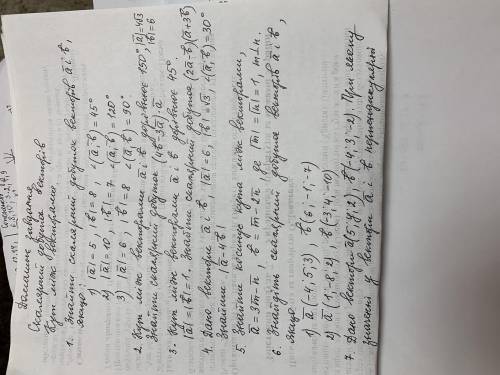 Домашнє завдання
Скалярний добуток векторів
Кут між векторами
1. Знайти скалярний добуток векторів a̅ і b̅,
якщо:
1) |a̅| = 5, |b̅| = 8 ∠(a̅, b̅) = 45°
2) |a̅| = 10, |b̅| = 7 ∠(a̅, b̅) = 120°
3) |a̅| = 6, |b̅| = 8 ∠(a̅, b̅) = 90°
2. Кут між векторами a̅ і b̅ дорівнює 150° |a̅| = 4√3
Знайти скалярний добуток (4b̅ - 3a̅)·a̅ |b̅| = 6
3. Кут між векторами a̅ і b̅ дорівнює 45°
|a̅| = |b̅| = 1. Знайти скалярний добуток (2a̅ - b̅)(a̅ + 3b̅)
4. Дано вектори a̅ і b̅, |a̅| = 6, |b̅| = √3, ∠(a̅, b̅) = 30°
Знайти |a̅ - 4b̅|
5. Знайти косинус кута між векторами,
a̅ = 3m̅ - n̅, b̅ = m̅ - 2n̅ де |m̅| = |n̅| = 1, m̅⊥n̅.
6. Знайдіть скалярний добуток векторів a̅ і b̅,
якщо
1) a̅(-4, 5, 3), b̅(6, -1, -7)
2) a̅(1, -8, 2), b̅(-3, 4, -10)
7. Дано вектори a̅(5, y, 2), b̅(-4, 3, -2). При якому
значенні y вектори a̅ і b̅ перпендикулярні